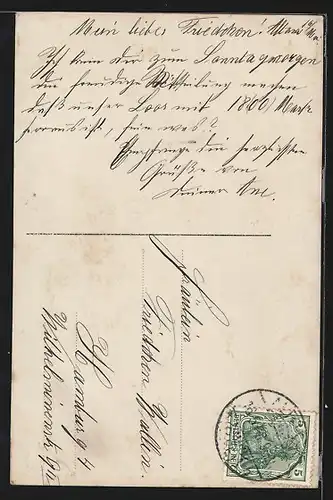 Mein liebes Friedchen!
Ich kann dir zum Sonntagmorgen
die freudige Mitteilung machen
daß unser Loos mit 1800 Mark
heraus ist, fein was?
Empfange die herzlichsten
Grüße von
Deiner
Fräulein
Friedchen Wallin.
Hamburg 4
Wilhelminenstr.
5